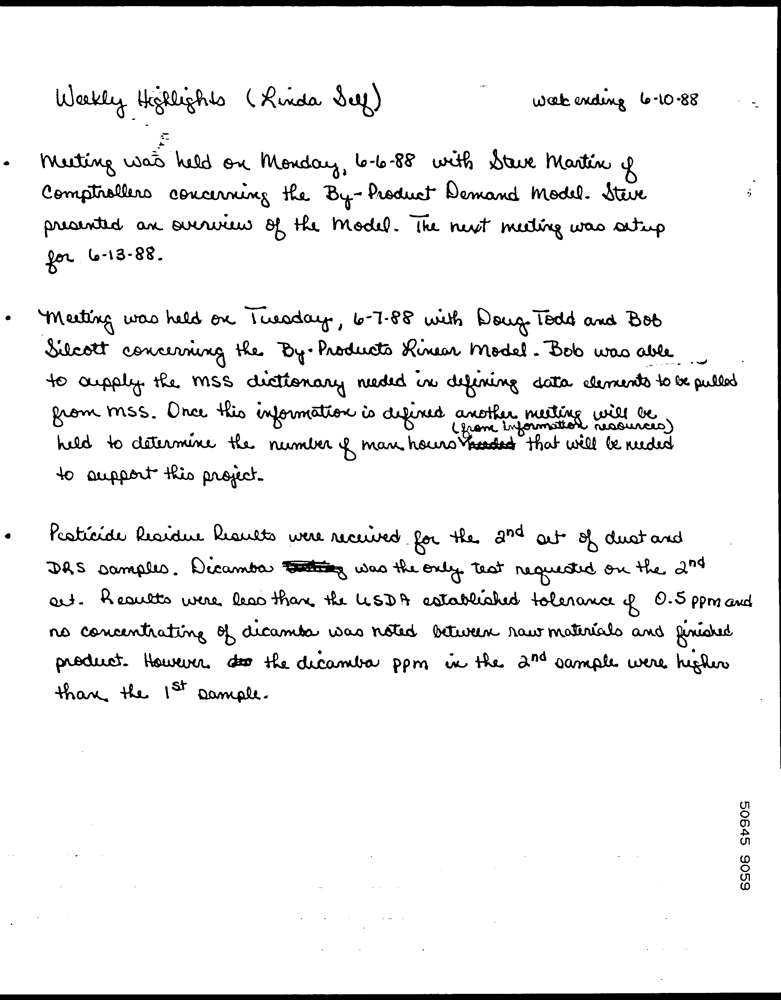 Weekly Highlights (Linda Self) week ending 6-10-88
• Meeting was held on Monday, 6-6-88 with Steve Martin of
Comptrollers concerning the By-Product Demand Model. Steve
presented an overview of the Model. The next meeting was setup
for 6-13-88.
• Meeting was held on Tuesday, 6-7-88 with Doug Todd and Bob
Silcott concerning the By-Products Linear Model. Bob was able
to supply the MSS dictionary needed in defining data elements to be pulled
from MSS. Once this information is defined another meeting will be
(from information resources)
held to determine the number of man hours that will be needed
to support this project.
• Pesticide Residue Results were received for the 2nd set of dust and
DRS samples. Dicamba was the only test requested on the 2nd
set. Results were less than the USDA established tolerance of 0.5 ppm and
no concentrating of dicamba was noted between raw materials and finished
product. However the dicamba ppm in the 2nd sample were higher
than the 1st sample.
50645 9059